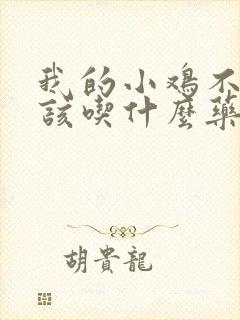 我的小鸡不
該喫什麼藥
胡貴龍